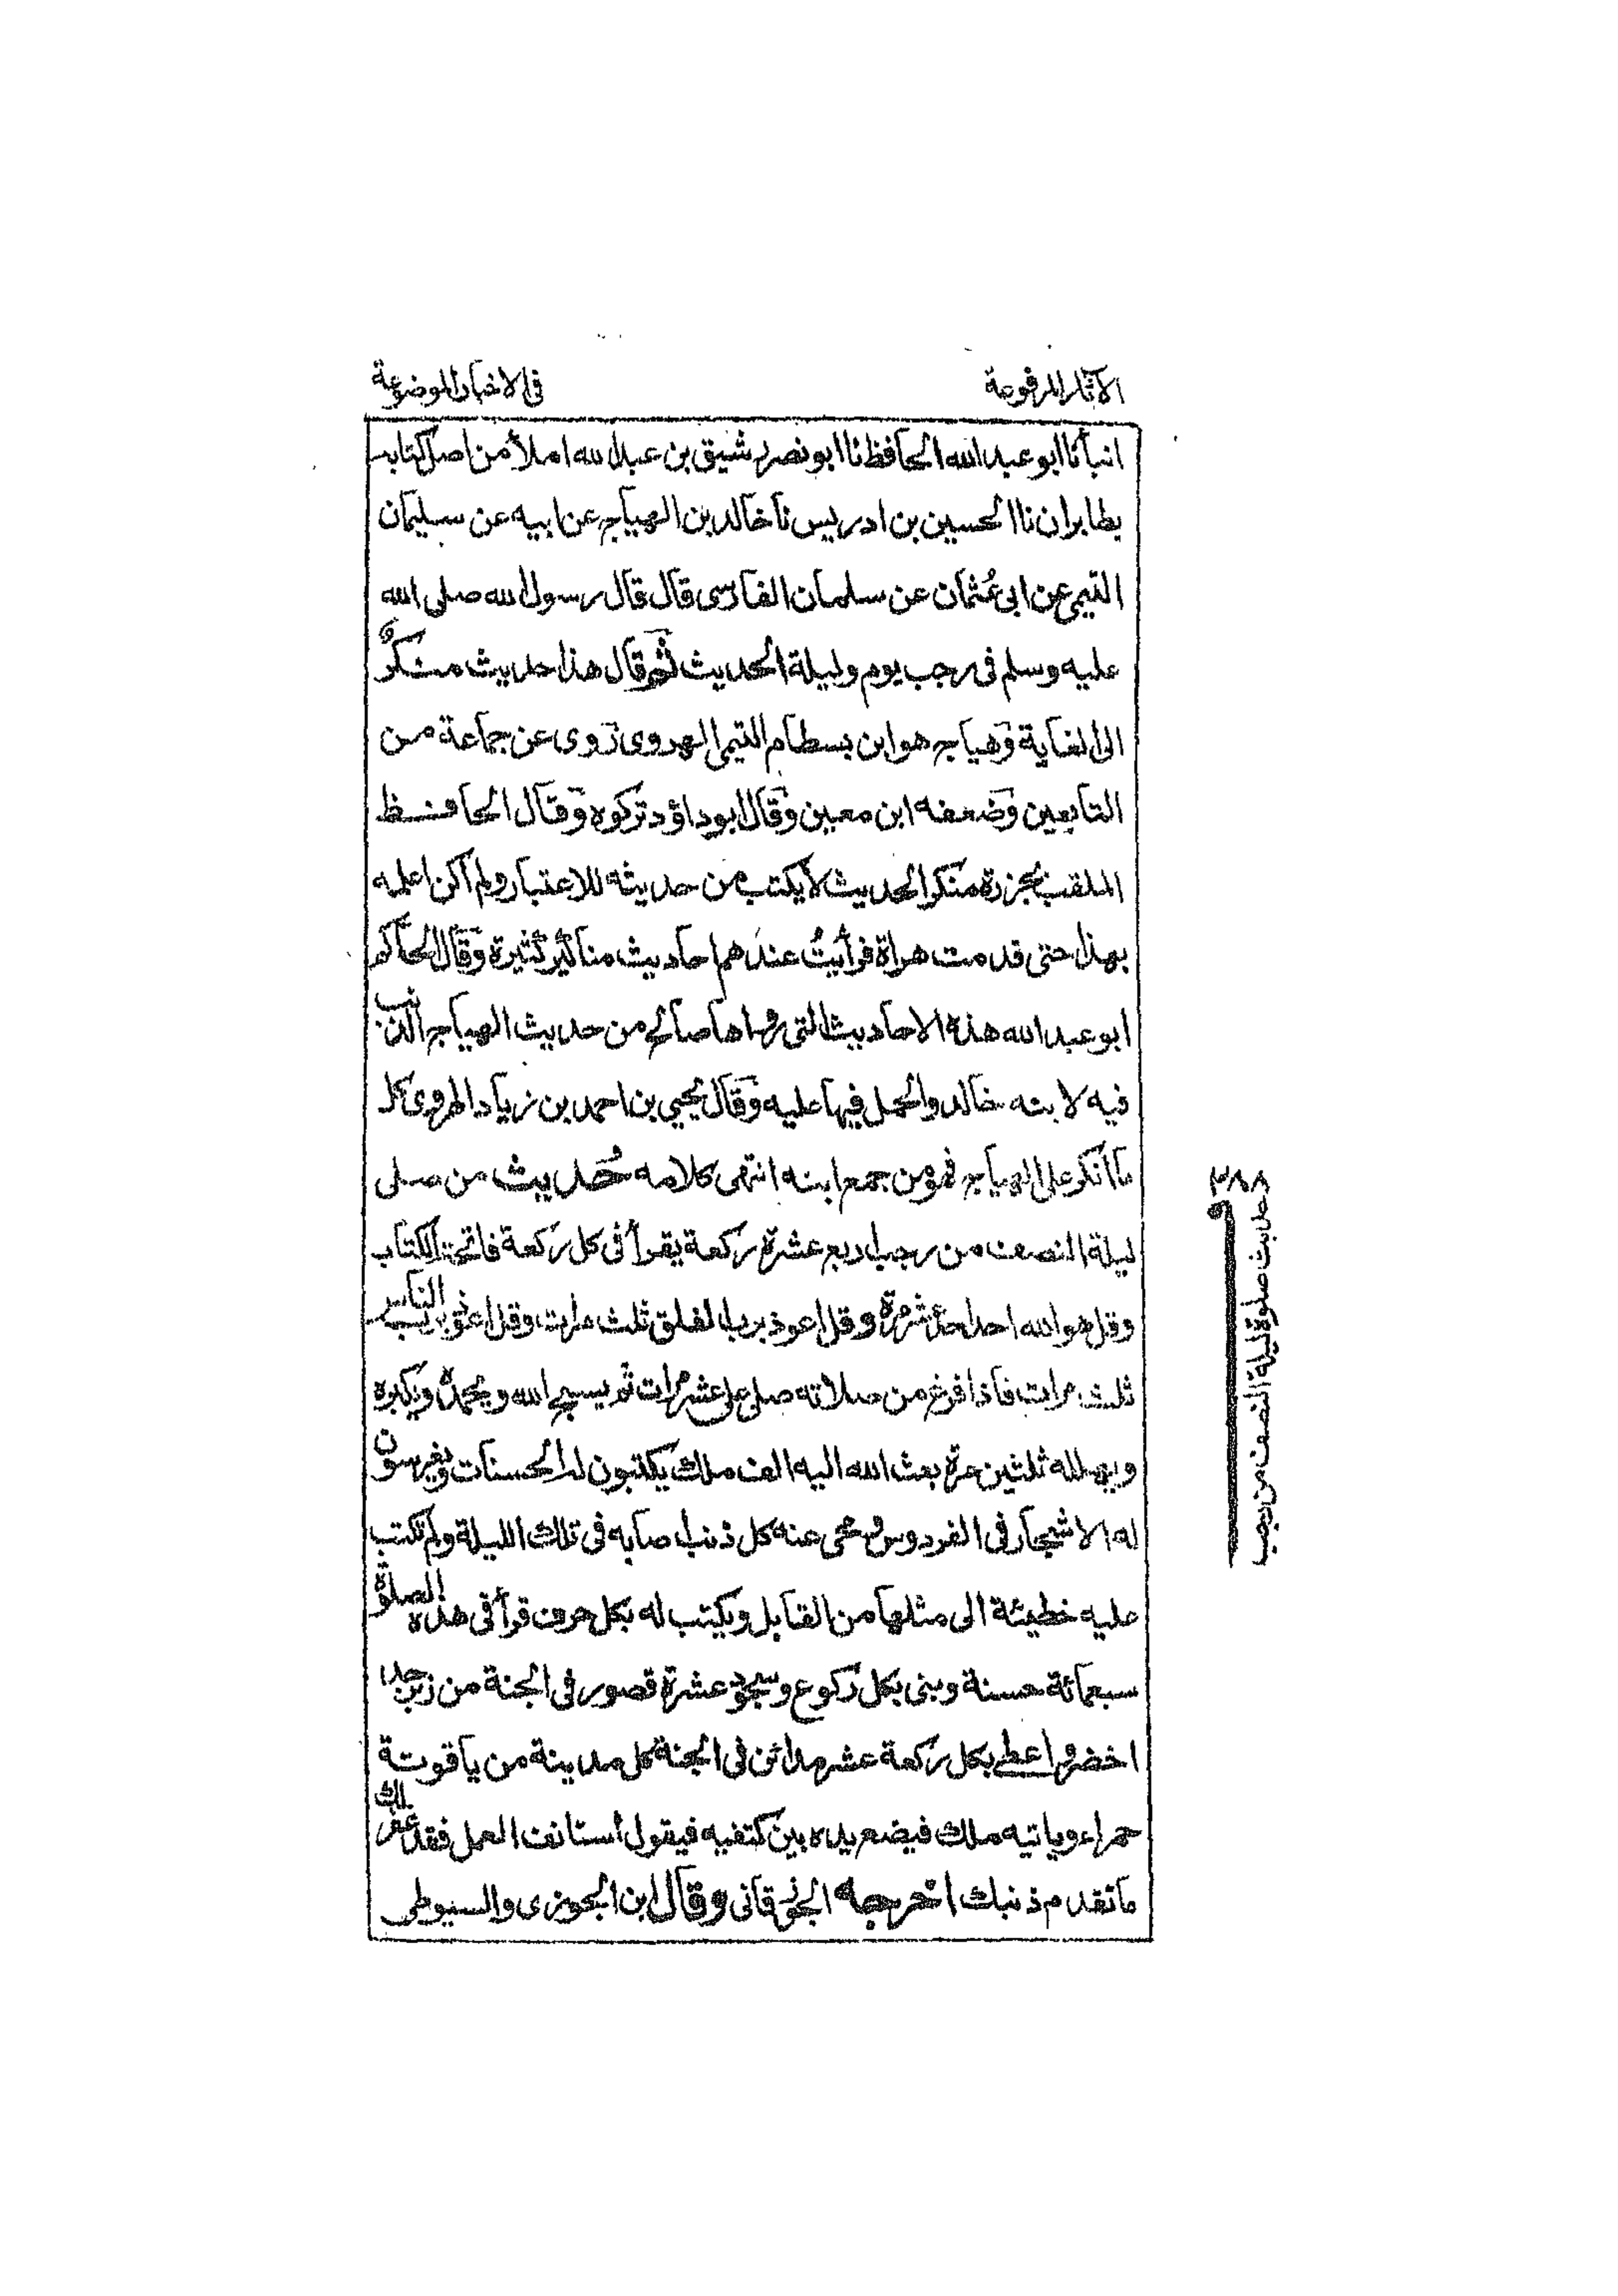 الآثار المرفوعة
فى الاخبار الموضوعة
انبأنا ابو عبد الله الحافظ نا ابو نصر رشيق بن عبد الله املأ من اصل كتابه
بطابران نا الحسين بن ادريس نا خالد بن الهياج عن ابيه عن سليمان
التيمى عن ابى عُثمان عن سلمان الفارسى قال قال رسول الله صلى الله
عليه وسلم فى رجب يوم وليلة الحديث ثم قال هذا حديث منكر
الى الغاية وهياج هو ابن بسطام التيمى الهروى روى عن جماعة من
التابعين وضعفه ابن معين وقال ابو داؤد تركوه وقال الحافظ
الملقب بجزرة منكر الحديث لا يكتب من حديثه للاعتبار ولم اكن اعلمه
بهذا حتى قدمت هراة فرأيتُ عندهم احاديث مناكير كثيرة وقال الحاكم
ابو عبد الله هذه الاحاديث التى رواها صالح من حديث الهياج الذنب
فيه لابنه خالد والحمل فيها عليه وقال يحيى بن احمد بن زياد الهروى كل
ما انكر على الهياج فهو من جمع ابنه انتهى كلامه حديث من صلى
ليلة النصف من رجب اربع عشرة ركعة يقرأ فى كل ركعة فاتحة الكتاب
وقل هو الله احد احد عشر مرة وقل اعوذ برب الفلق ثلث مرات وقل اعوذ برب الناس
ثلث مرات فاذا فرغ من صلاته صلى على عشر مرات ثم يسبح الله ويحمده ويكبره
ويهلله ثلثين مرة بعث الله اليه الف ملك يكتبون له الحسنات ويغرسون
له الاشجار فى الفردوس ومحى عنه كل ذنب اصابه فى تلك الليلة ولم تكتب
عليه خطيئة الى مثلها من القابل ويكتب له بكل حرف قرأ فى هذه الصلوة
سبعمائة حسنة وبنى بكل ركوع وسجود عشرة قصور فى الجنة من زبرجد
اخضر واعطى بكل ركعة عشر مدائن فى الجنة كل مدينة من ياقوتة
حمراء وياتيه ملك فيضع يده بين كتفيه فيقول أستانف العمل فقد غفر لك
ما تقدم ذنبك اخرجه الجوزقانى وقال ابن الجوزى والسيوطى
٣٨٨
حديث صلوة ليلة النصف من رجب